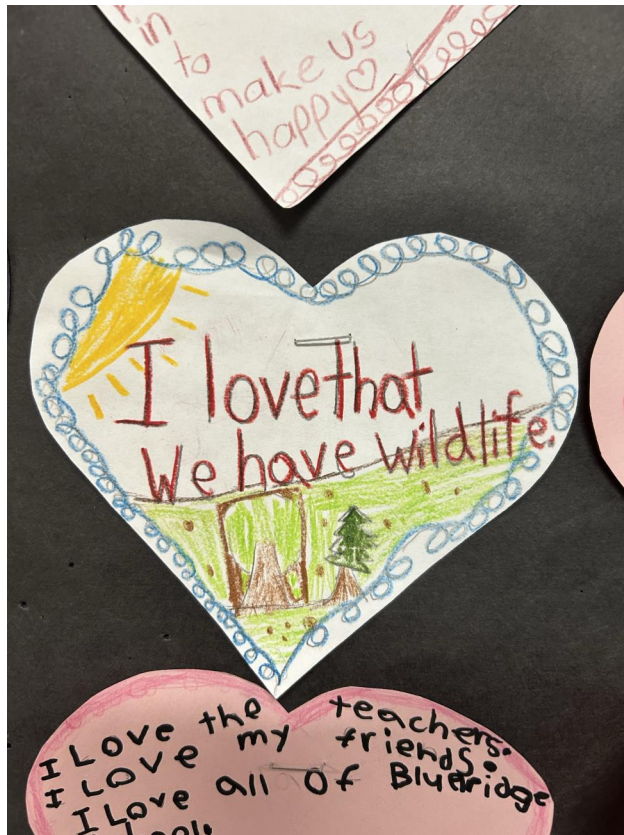 in
to
make us
happy
I love that
We have wildlife.
I Love the teachers.
I Love my friends.
I Love all of Blueridge